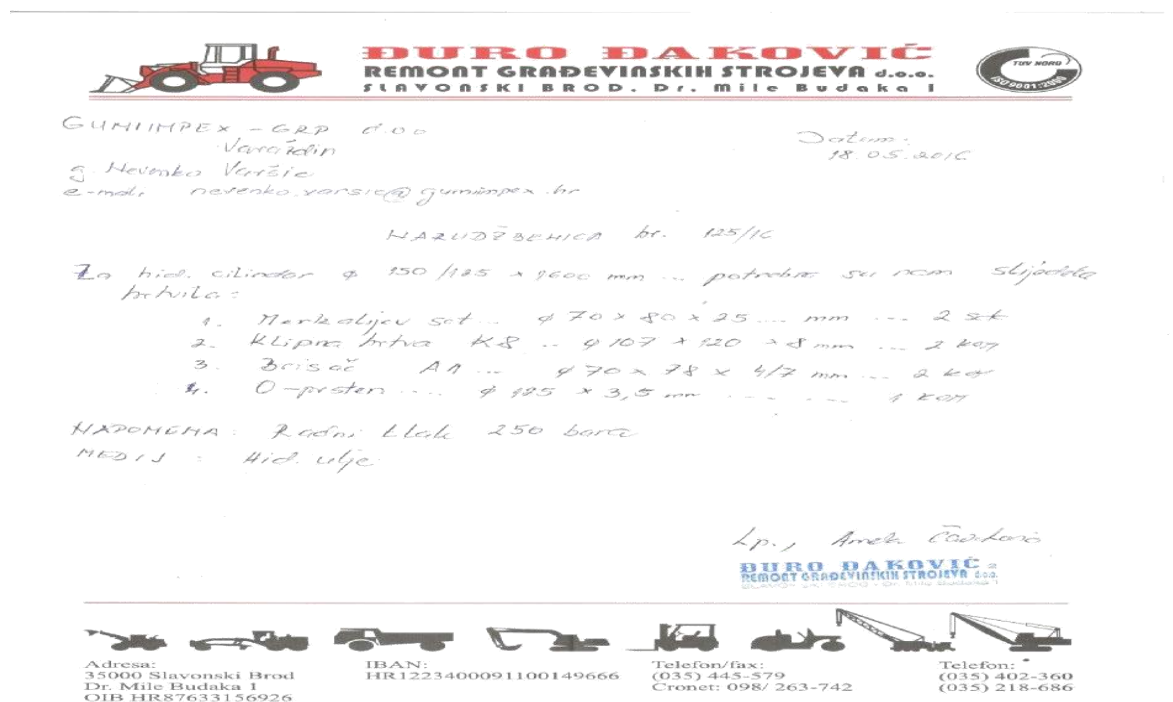 ĐURO ĐAKOVIĆ
REMONT GRAĐEVINSKIH STROJEVA d.o.o.
SLAVONSKI BROD, Dr. Mile Budaka 1
TUV NORD
ISO 9001:2000
GUMIIMPEX - GRP d.o.o
Varaždin
g. Nevenko Varšić
e-mail: nevenko.varsic@gumiimpex.hr
Datum:
18.05.2016
NARUDŽBENICA br. 125/16
Za hid. cilindar φ 150/125 x 1600 mm ... potrebne su nam slijedeća
brtvila:
1. Merkalijev set ... φ 70 x 80 x 25 .... mm .... 2 set
2. Klipna brtva K8 .. φ 107 x 120 x 8 mm ... 2 kom
3. Brisač A1 ... φ 70 x 78 x 4/7 mm ... 2 kom
4. O-prsten .... φ 125 x 3,5 mm ... 1 kom
NAPOMENA: Radni tlak 250 bara
MEDIJ : Hid. ulje
Lp.,
ĐURO ĐAKOVIĆ 2
REMONT GRAĐEVINSKIH STROJEVA d.o.o.
SLAVONSKI BROD - Dr. Mile Budaka 1
Adresa:
35000 Slavonski Brod
Dr. Mile Budaka 1
OIB HR87633156926
IBAN:
HR1223400091100149666
Telefon/fax:
(035) 445-579
Cronet: 098/ 263-742
Telefon:
(035) 402-360
(035) 218-686